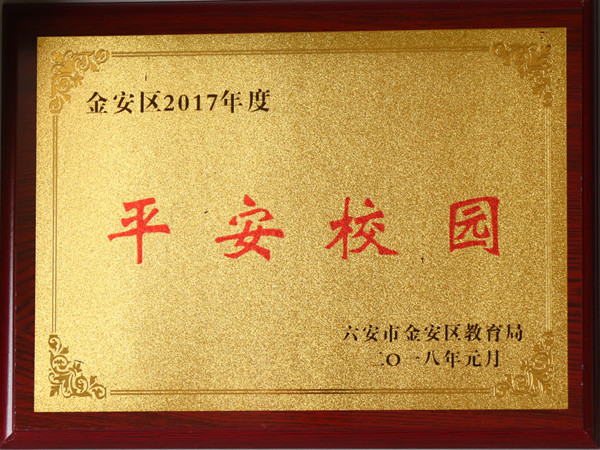 金安区2017年度
平安校园
六安市金安区教育局
二〇一八年元月